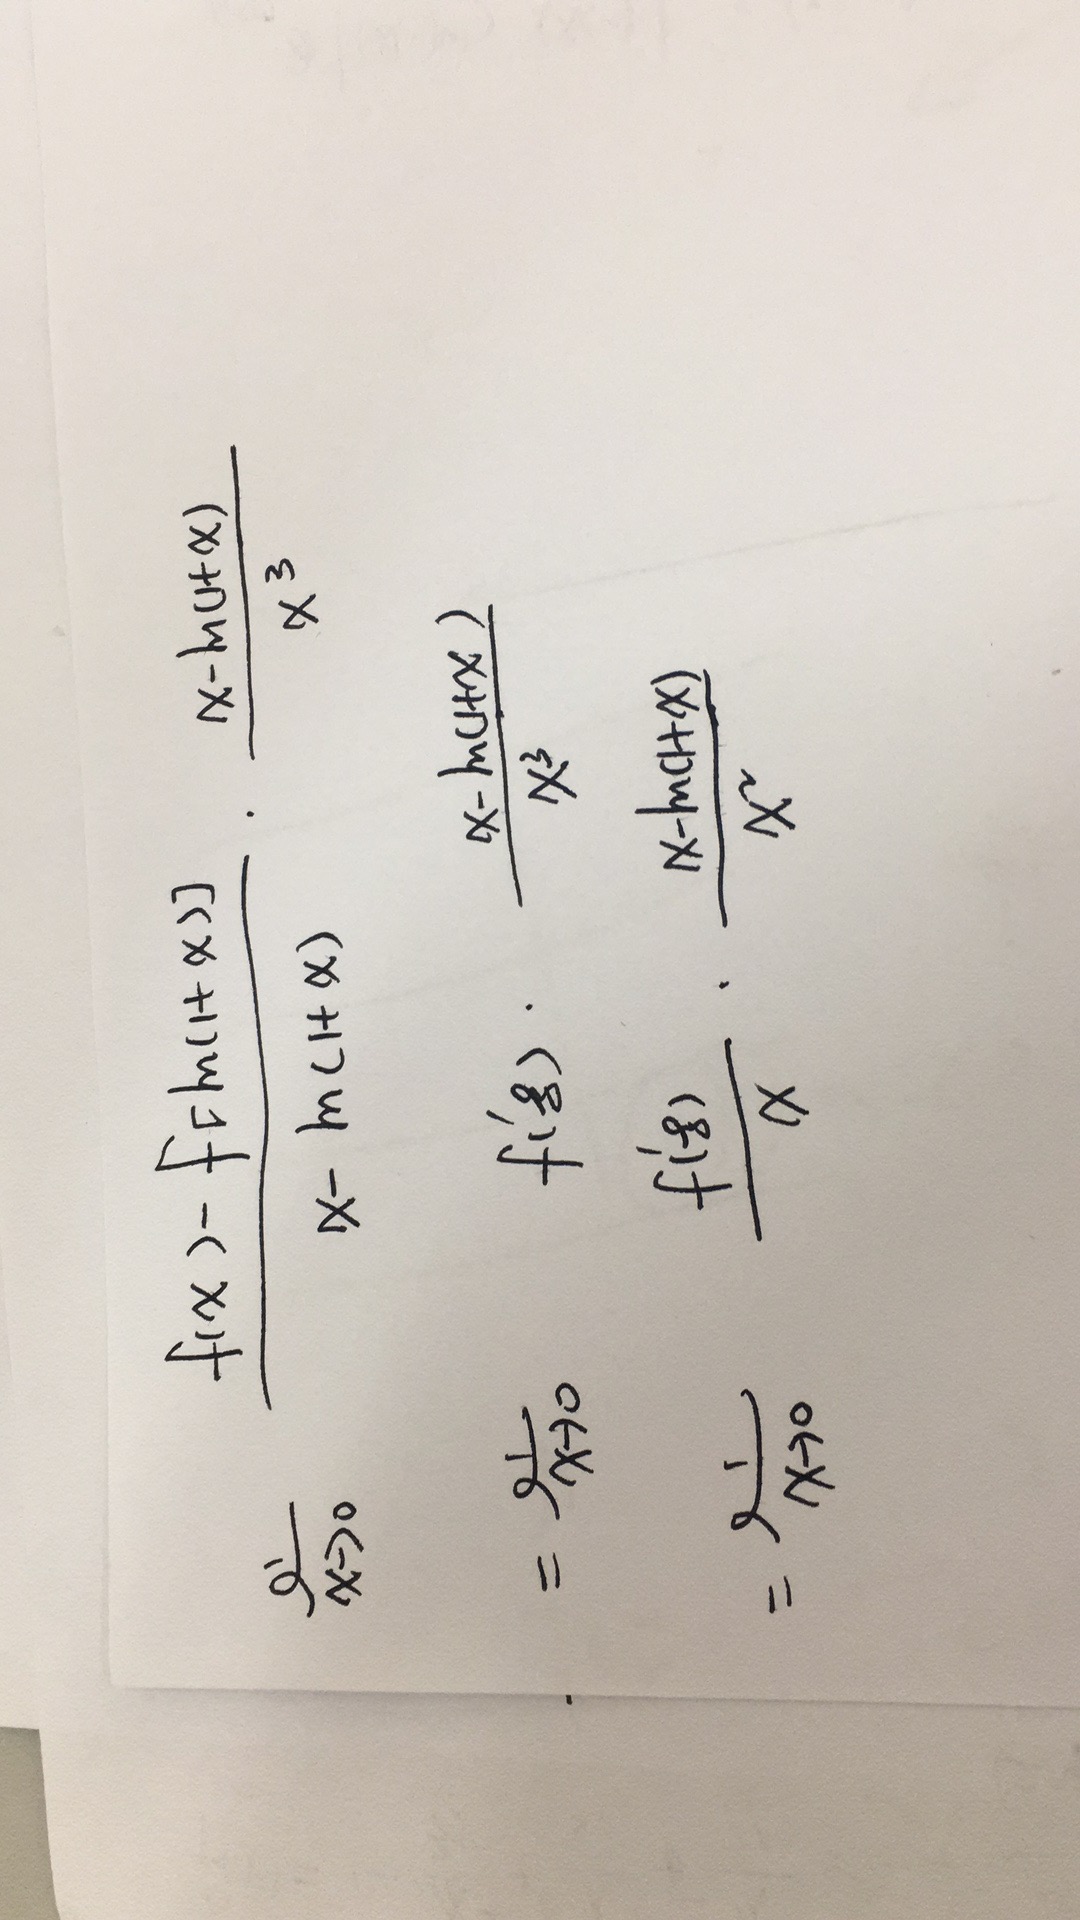 lim x→0 (f(x) - f[ln(1+x)]) / (x - ln(1+x)) · (x - ln(1+x)) / x³
= lim x→0 f'(ξ) · (x - ln(1+x)) / x³
= lim x→0 f'(ξ) / x · (x - ln(1+x)) / x²